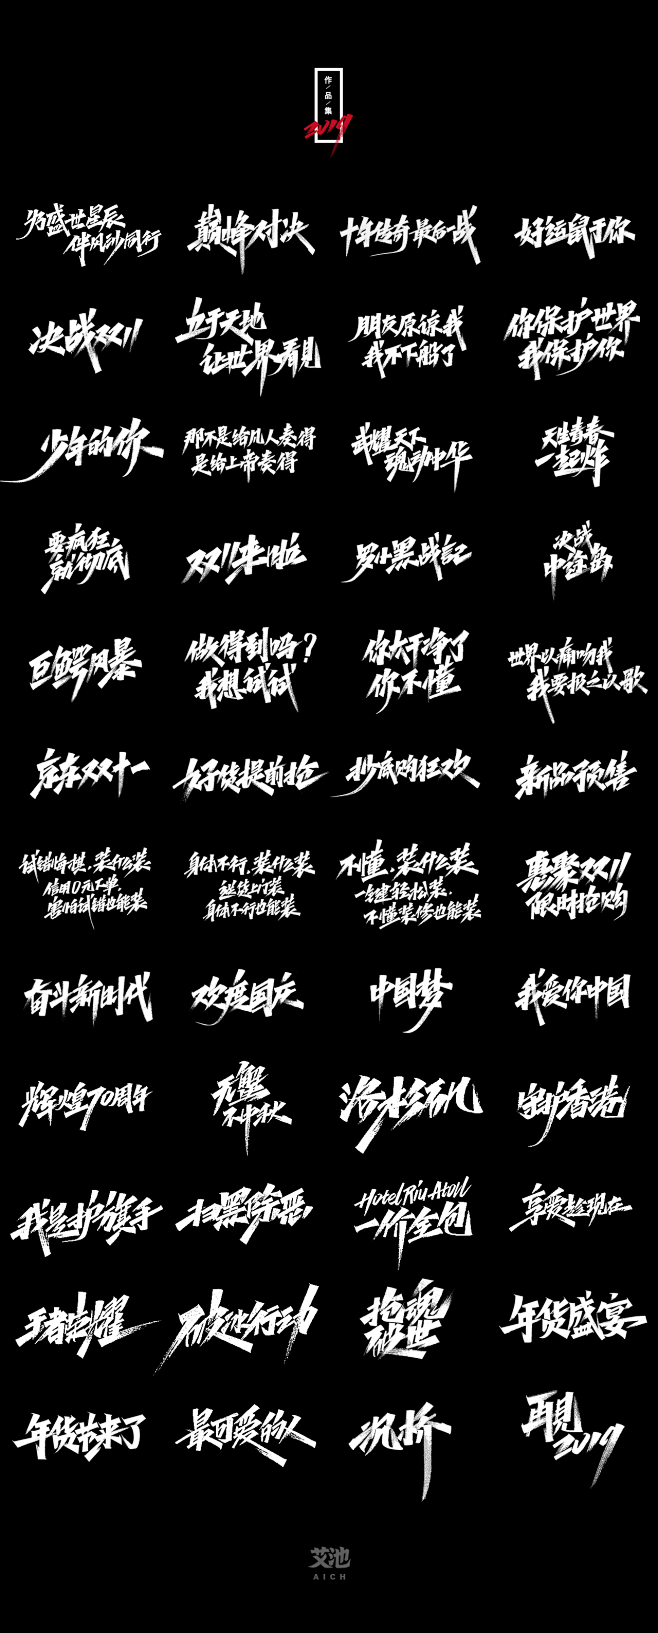 作/品/集
2019
为盛世星辰
伴风沙同行
巅峰对决
十年传奇 最后一战
好运鼠于你
决战双11
立于天地
让世界看見
朋友原谅我
我不下船了
你保护世界
我保护你
少年的你
那不是给凡人奏得
是给上帝奏得
武耀天下
魂动中华
天生青春
一起炸
要疯狂
就彻底
双11来啦
罗小黑战記
决战
中途岛
巨鳄风暴
做得到吗?
我想试试
你太干净了
你不懂
世界以痛吻我
我要报之以歌
京东双十一
好货提前抢
抄底购狂欢
新品预售
试错悔棋,装什么装
信用0元下单,
害怕试错也能装
身体不行,装什么装
送货上门装
身体不行也能装
不懂,装什么装
一键轻松装,
不懂装修也能装
惠聚双11
限时抢购
奋斗新时代
欢度国庆
中国梦
我爱你中国
辉煌70周年
无蟹
不中秋
洛杉矶
守护香港
我是护旗手
扫黑除恶
Hotel Riu Atoll
一价全包
享受趁现在
王者荣耀
破冰行动
抢魂
破世
年货盛宴
年货节来了
最可爱的人
冯桥
再見
2019
艾池
AICH